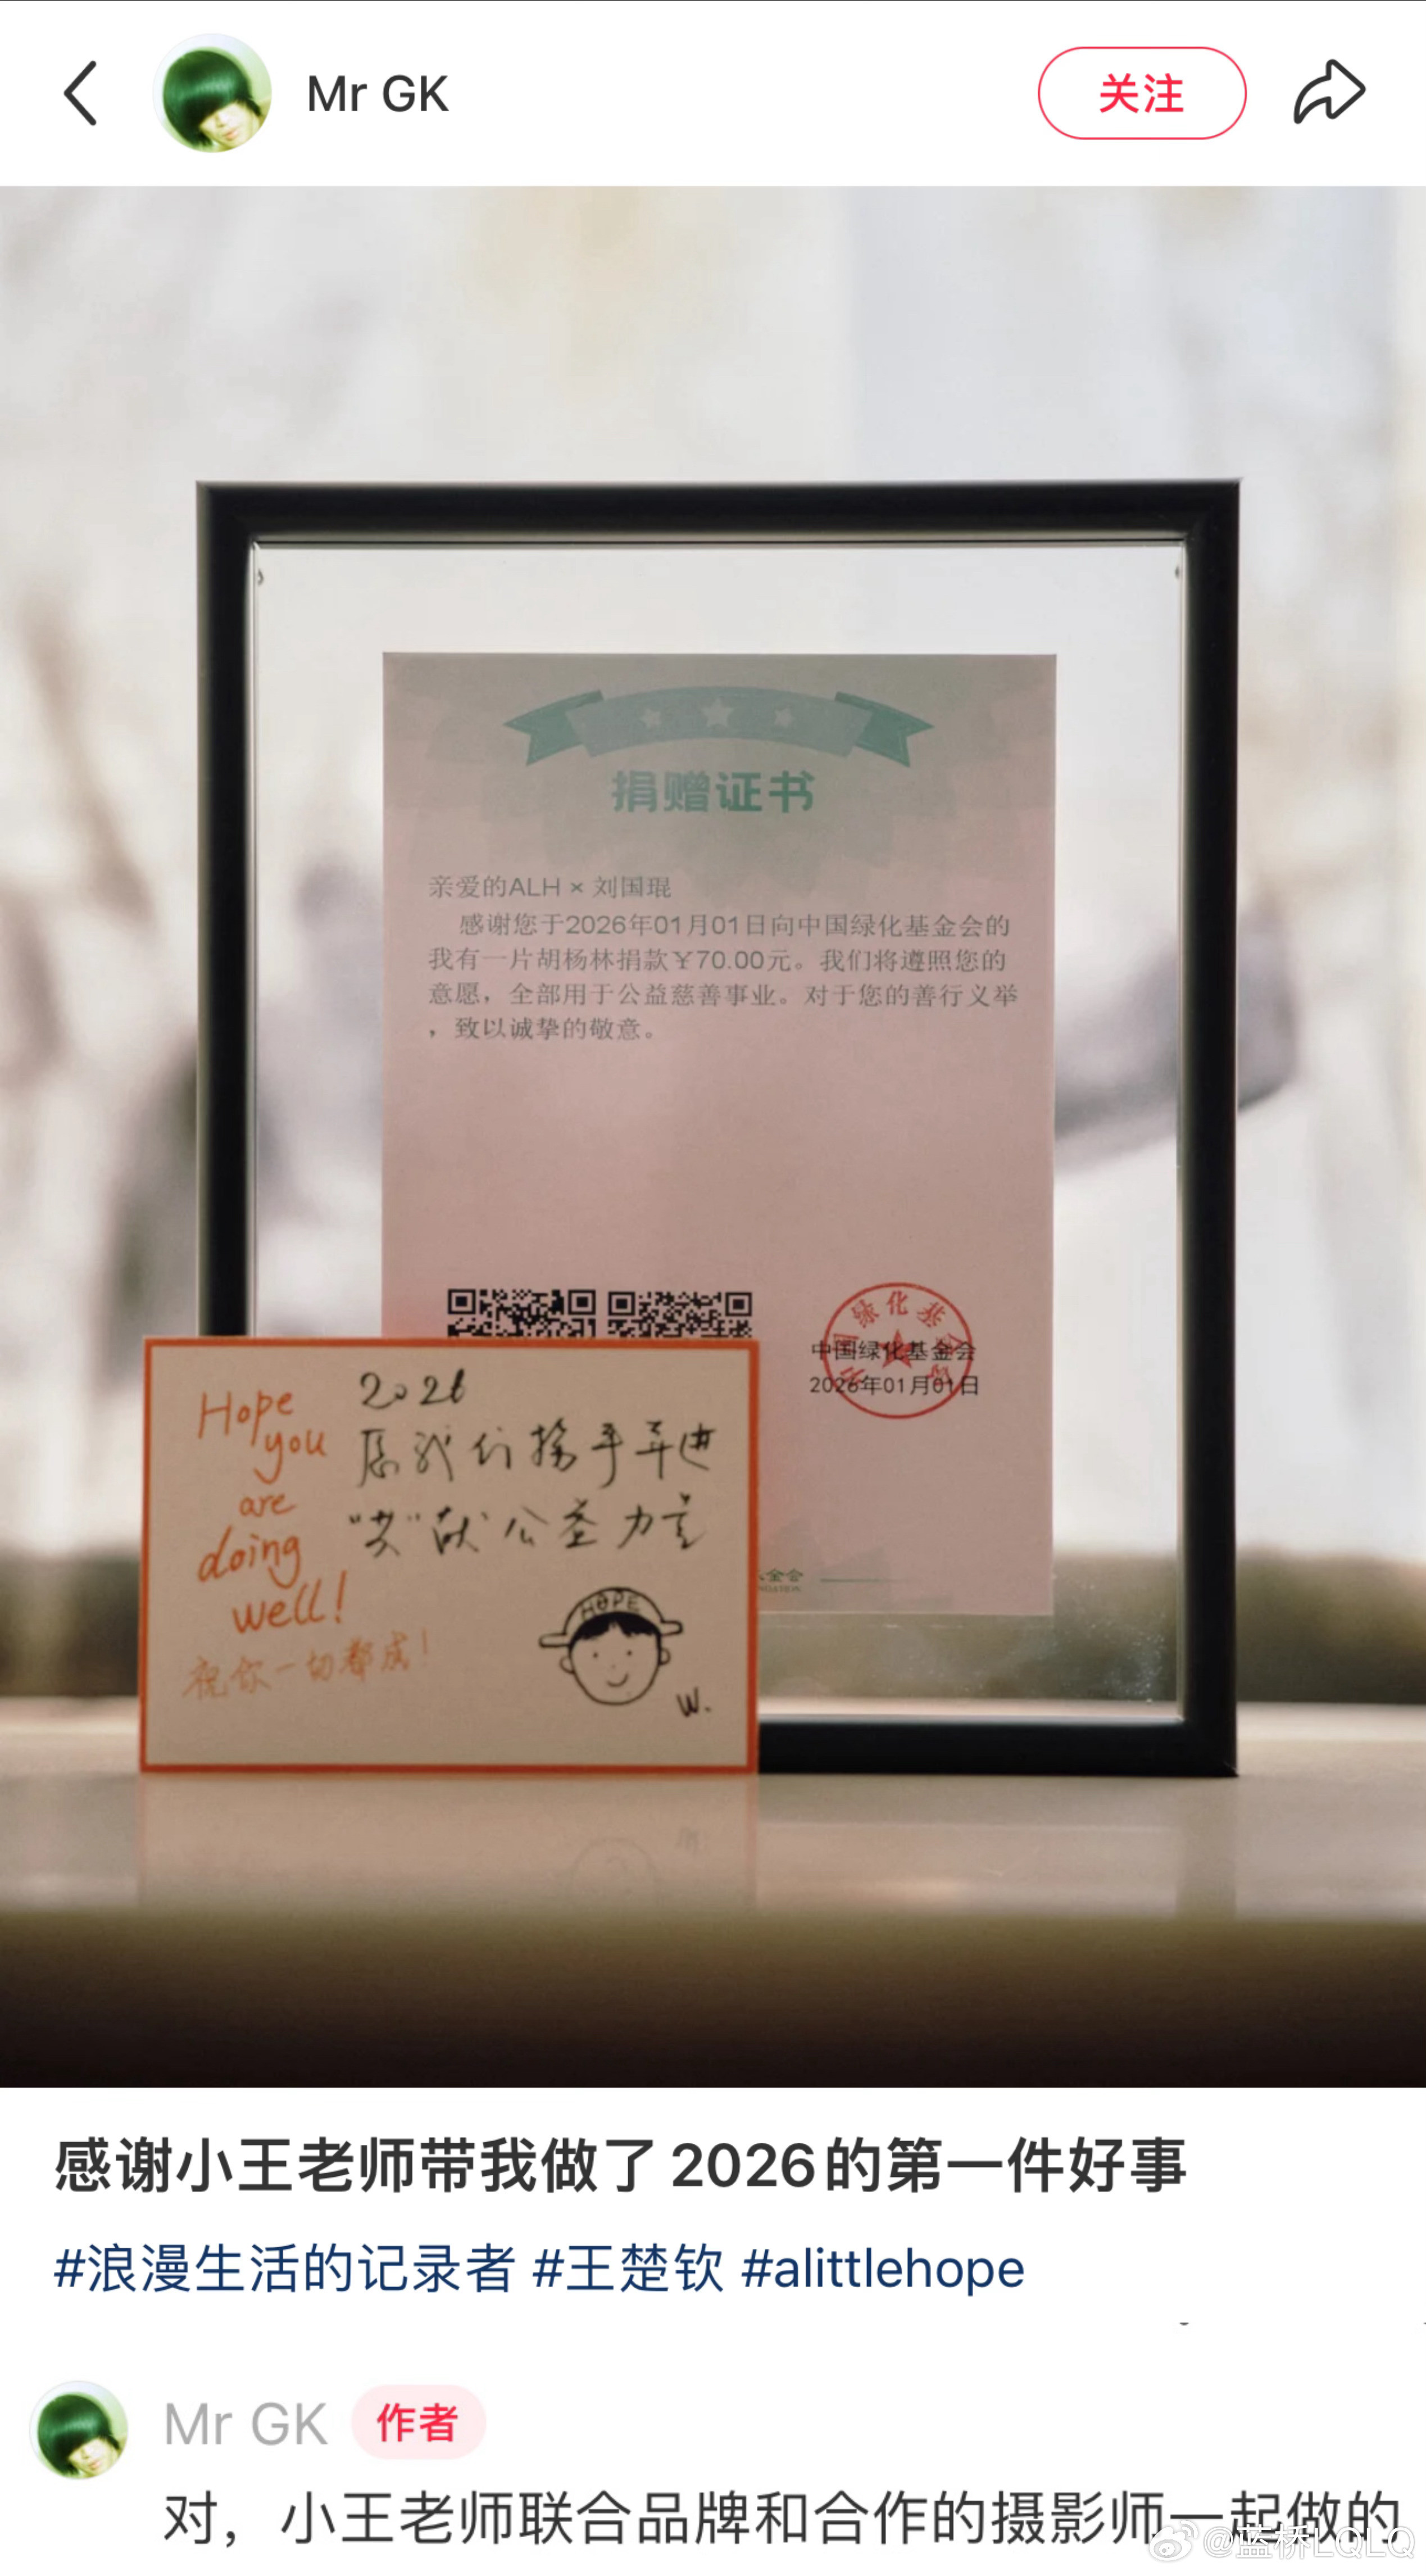 Mr GK
关注
捐赠证书
亲爱的ALH × 刘国琨
感谢您于2026年01月01日向中国绿化基金会的
我有一片胡杨林捐款¥70.00元。我们将遵照您的
意愿，全部用于公益慈善事业。对于您的善行义举
，致以诚挚的敬意。
中国绿化基金会
2026年01月01日
Hope
you
are
doing
well!
祝你一切都成!
2026
愿我们携手并进
"共"献公益力量
HOPE
W.
感谢小王老师带我做了2026的第一件好事
#浪漫生活的记录者 #王楚钦 #alittlehope
Mr GK 作者
对，小王老师联合品牌和合作的摄影师一起做的
@蓝桥LQLQ